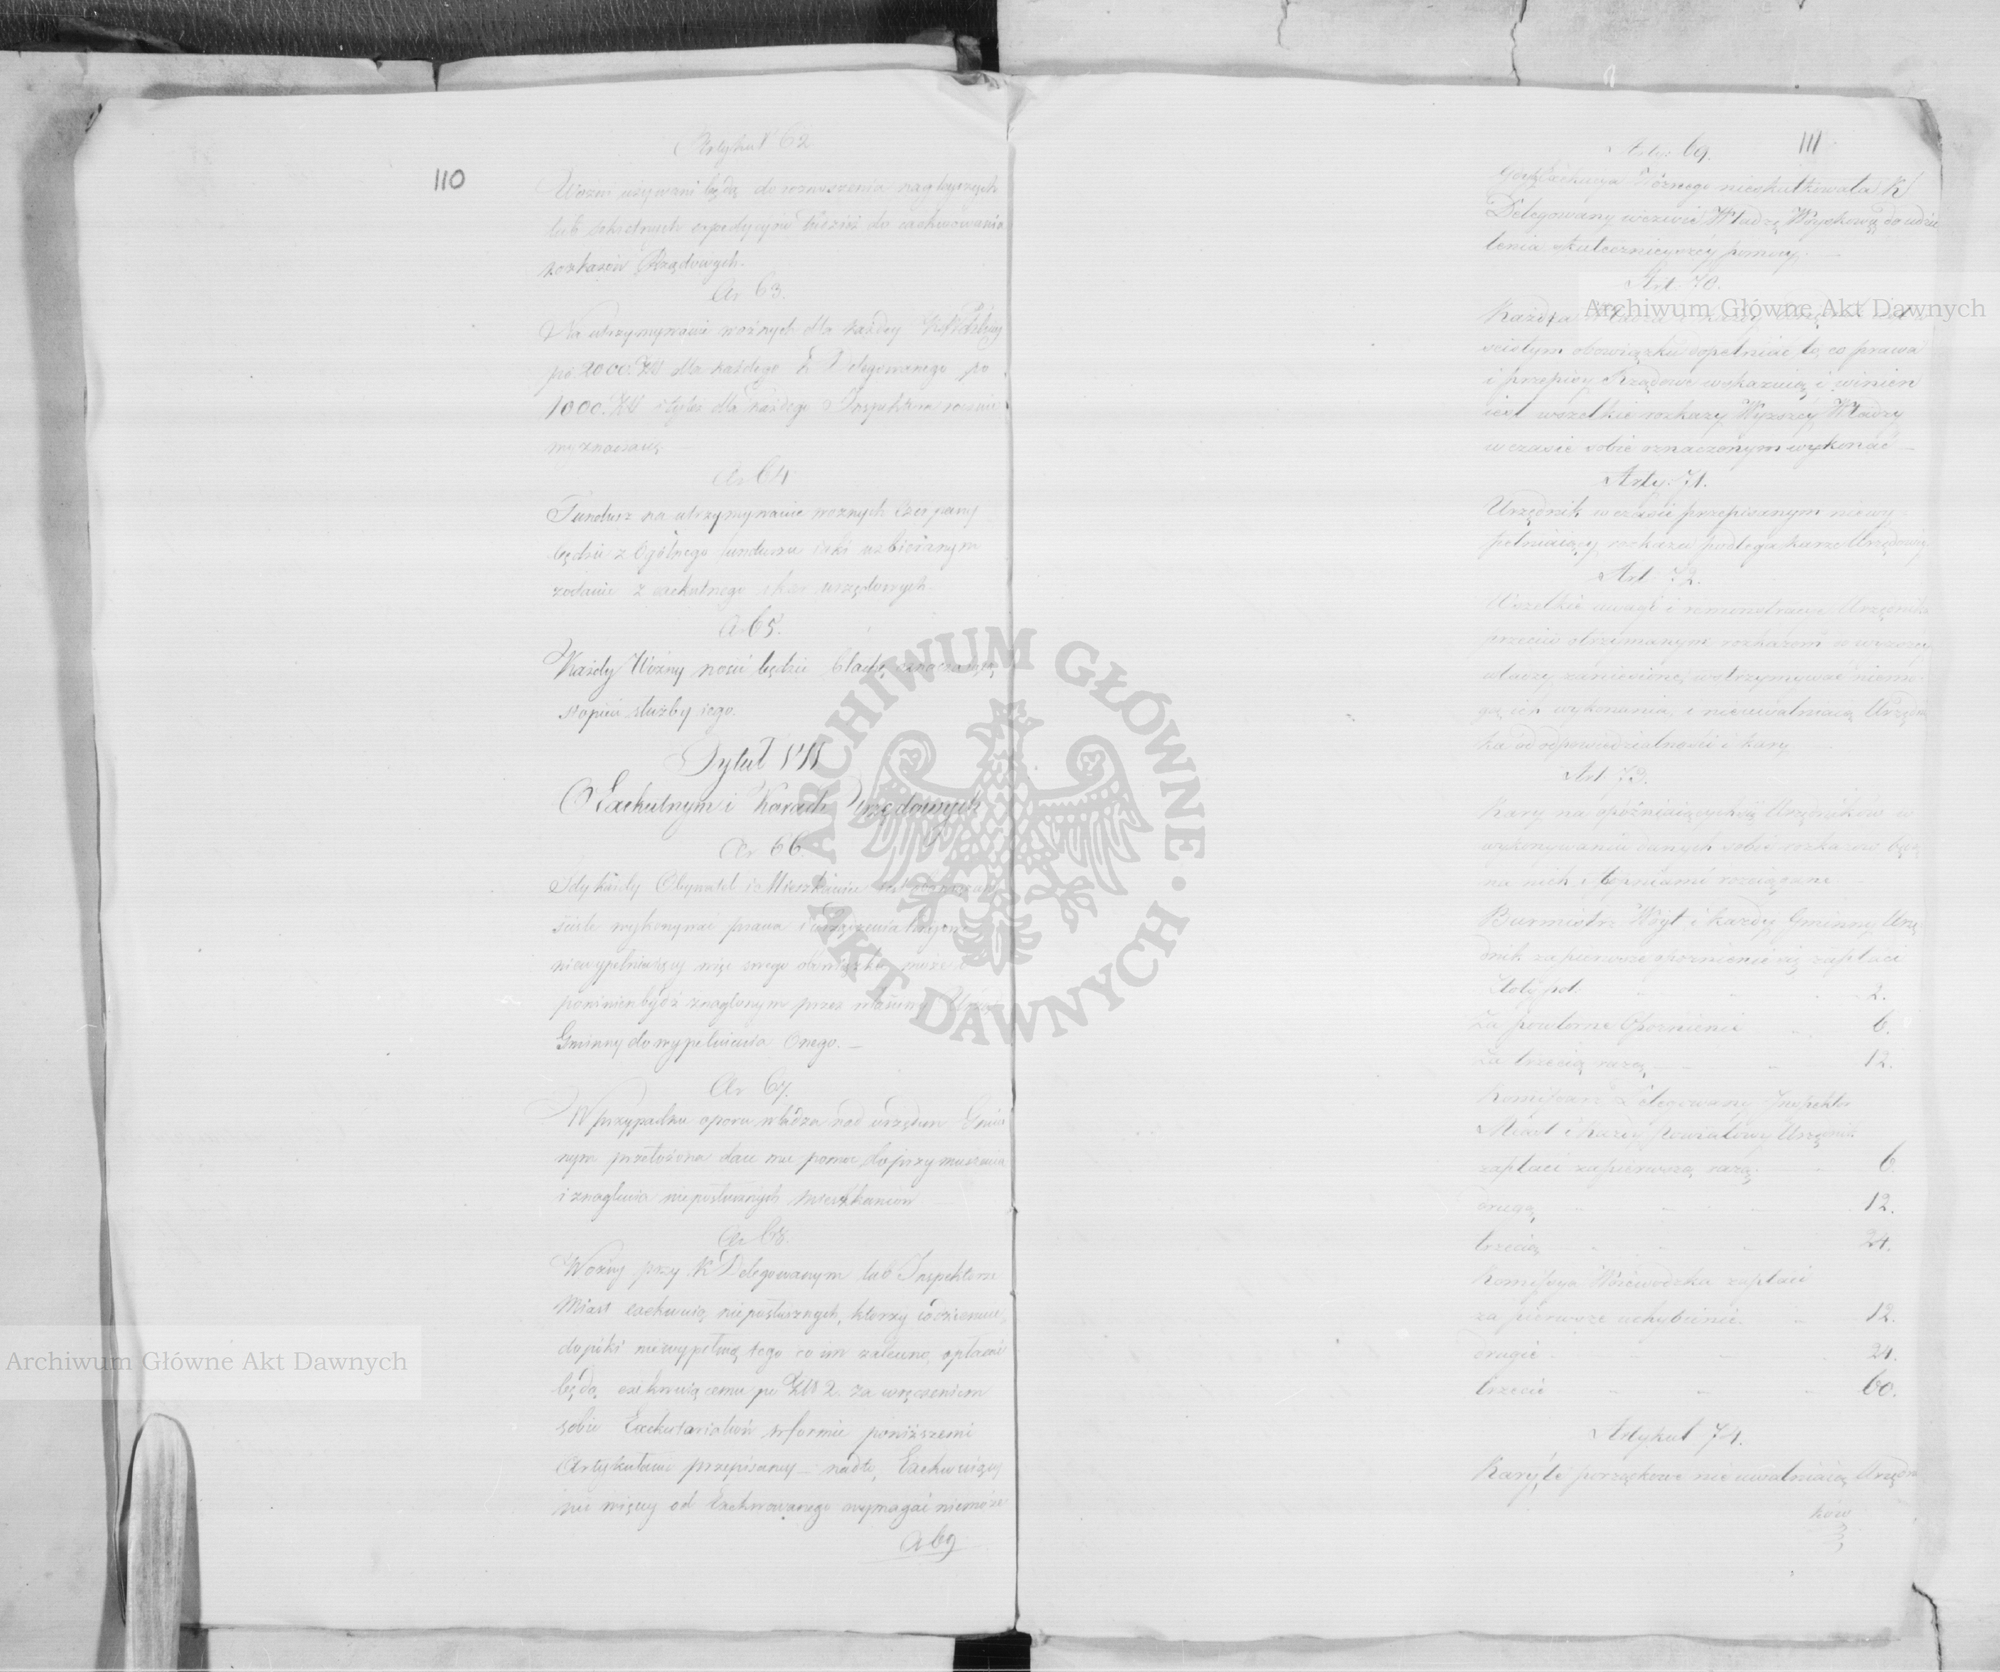 110
Artykuł 62
Wozni używani będą do roznoszenia naglejszych
lub sekretnych expedycyow tudzież do exekwowania
rozkazow Rządowych.
Ar 63.
Na utrzymywanie woźnych dla każdey
po 2000 Złł dla każdego K Delegowanego po
1000 Złł i tyleż dla każdego Inspektora rocznie
wyznaczaią
Ar 64
Fundusz na utrzymywanie woznych czerpany
będzie z Ogólnego funduszu iaki uzbieranym
zostanie z exekutnego i kar urzędowych.
Ar 65.
Każdy Woźny nosić będzie blachę oznaczaiącą
stopień służby iego.
Tytuł VII
O Exekutnym i Karach Urzędowych
Ar 66.
Gdy każdy Obywatel i Mieszkaniec
ściśle wykonywać prawa i urządzenia kraiowe
niewypełniaiący więc swego obowiązku może i
powinien bydź znaglonym przez własciwy Urząd
Gminny do wypełnienia Onego. —
Ar 67.
W przypadku oporu władza nad urzędem Gmin
nym przełożona daie mu pomoc do przymuszenia
i znaglenia nieposłusznych mieszkancow
Ar 68.
Wozny przy K Delegowanym lub Inspektorze
Miast exekwuią nieposłusznych, ktorzy codziennie,
dopóki niewypełnią tego co im zalecono, opłacać
będą exekwuiącemu po Złł 2. za wręczeniem
sobie Exekutorialiow w formie poniższemi
Artykułami przepisaney — nadto, Exekwuiący
nic więcey od Exekwowanego wymagać niemoże
A 69
111
Arty: 69.
Gdyby Exekucya Woznego nieskutkowała K
Delegowany wezwie Władzę Woyskową do udzie
lenia skutecznieyszey pomocy. —
Art. 70.
Każda Władza i każdy
scisłym obowiązku dopełniać to, co prawa
i przepisy Rządowe wskazuią i winien
iest wszelkie rozkazy Wyzszey Władzy
w czasie sobie oznaczonym wykonać —
Arty. 71.
Urzędnik w czasie przepisanym niewy
pełniaiący rozkazu podlega karze Urzędowey
Art. 72.
Wszelkie uwagi i remonstracye Urzędnika
przeciw otrzymanym rozkazom do wyzszey
władzy zaniesione, wstrzymywać niemo
gą ich wykonania, i nieuwalniaią Urzędni
ka od odpowiedzialności i kary
Art. 73.
Kary na opóźniaiących się Urzędników w
wykonywaniu danych sobie rozkazow będą
na nich stopniami rozciągane
Burmistrz Wóyt i każdy Gminny Urzę
dnik za pierwsze spoznienie się zapłaci
Złoty pol. 2.
Za powtorne Opoznienie 6.
Za trzecią razą 12.
Komissarz Delegowany Inspektor
Miast i każdy Powiatowy Urzędnik
zapłaci za pierwszą razą 6
drugą 12.
trzecią 24.
Komissya Woiewodzka zapłaci
za pierwsze uchybienie 12.
drugie 24.
trzecie 60.
Artykuł 74.
Kary te porządkowe nie uwalniaią Urzędni
ków
Archiwum Główne Akt Dawnych
Archiwum Główne Akt Dawnych
ARCHIWUM GŁÓWNE AKT DAWNYCH